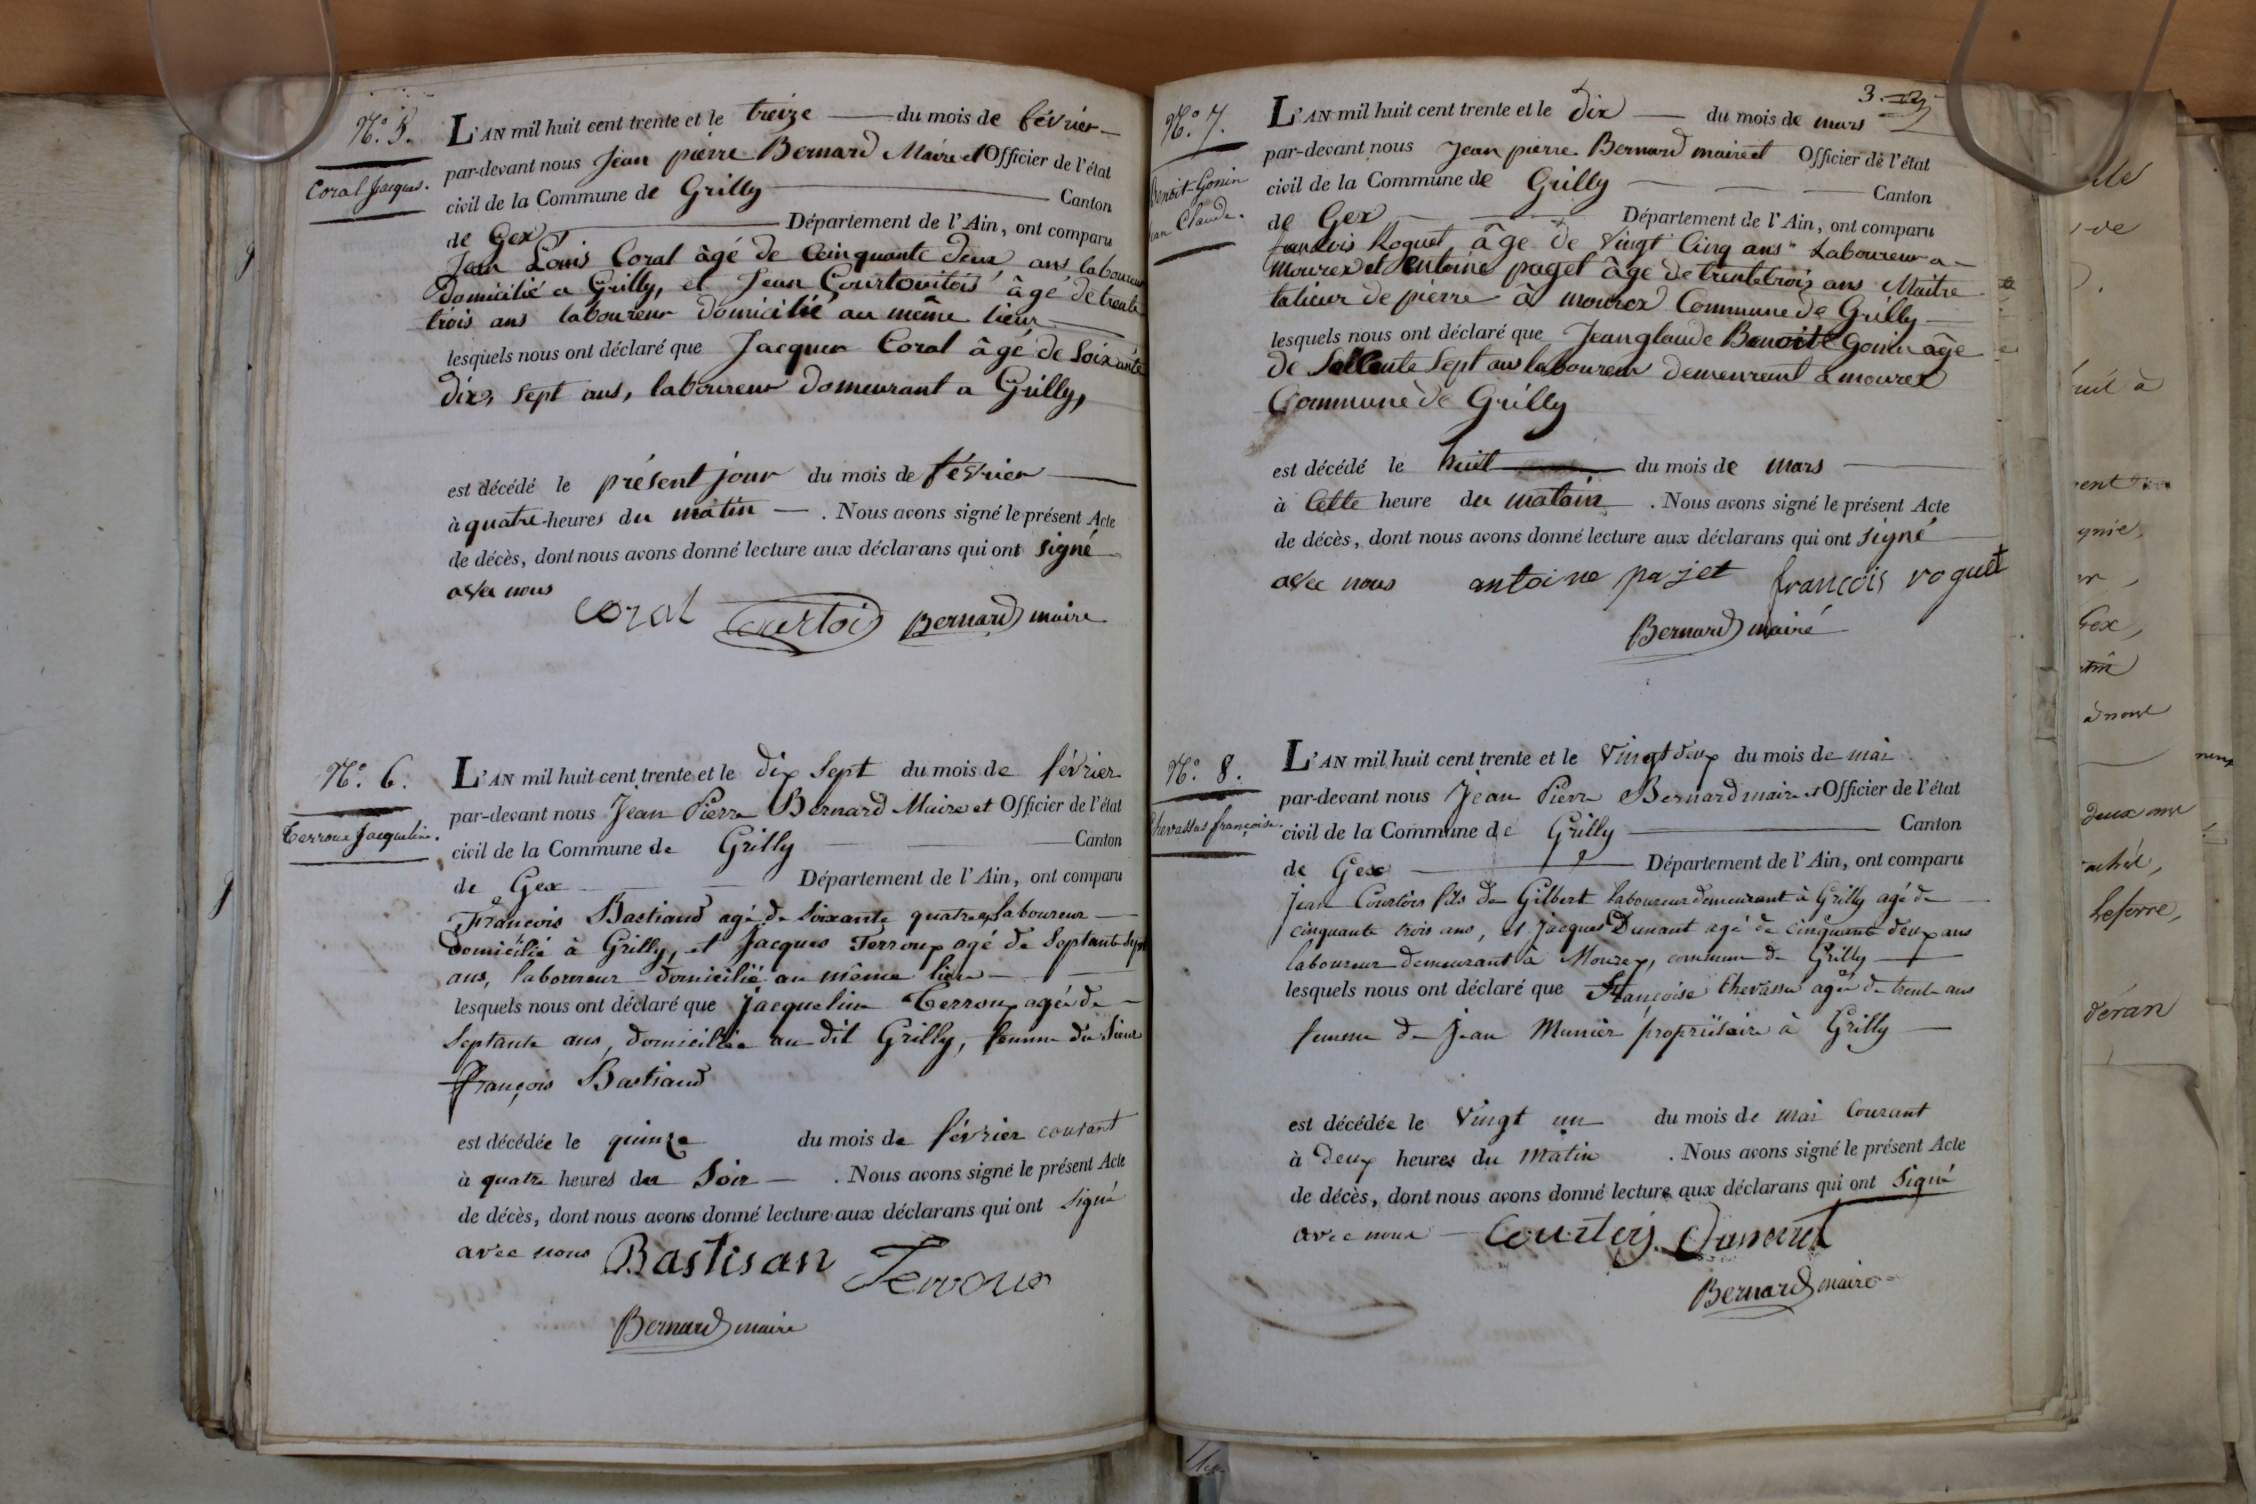 N.° 5.
Coral Jacques.
L'AN mil huit cent trente et le treize du mois de février
par-devant nous Jean pierre Bernard Maire et Officier de l'état
civil de la Commune de Grilly Canton
de Gex Département de l'Ain, ont comparu
Jean Louis Coral âgé de Ceinquante deux ans laboureur
domicilié a Grilly, et Jean âgé de trente
trois ans laboureur domicilié au même lieu
lesquels nous ont déclaré que Jacques Coral âgé de Soixante
dix, sept ans, laboureur domeurant a Grilly,
est décédé le présent jour du mois de février
à quatre heures du matin . Nous avons signé le présent Acte
de décès, dont nous avons donné lecture aux déclarans qui ont signé
avec nous
Coral Courtois Bernard maire
N.° 6.
Terroux Jacqueline.
L'AN mil huit cent trente et le dix Sept du mois de février
par-devant nous Jean Pierre Bernard Maire et Officier de l'état
civil de la Commune de Grilly Canton
de Gex Département de l'Ain, ont comparu
François Bastiand agé de Soixante quatre ans laboureur
domicilié à Grilly, et Jacques Terroux agé de Septante Sept
ans, laboureur domicilié au même lieu
lesquels nous ont déclaré que Jacqueline Terroux agée de
Septante ans, domiciliée au dit Grilly, femme du Sieur
François Bastiand
est décédée le quinze du mois de février courant
à quatre heures du Soir . Nous avons signé le présent Acte
de décès, dont nous avons donné lecture aux déclarans qui ont Signé
avec nous Bastisan Terroux
Bernard maire
3.
N.° 7.
Benoit-Gonin
Jean Claude.
L'AN mil huit cent trente et le dix du mois de mars
par-devant nous Jean pierre Bernard maire et Officier de l'état
civil de la Commune de Grilly Canton
de Gex Département de l'Ain, ont comparu
francois Roguet âge de vingt Cinq ans Laboureur a
mourex et Antoine paget âge de trente trois ans Maitre
talieur de pierre â mourex Commune de Grilly
lesquels nous ont déclaré que Jean glaude Benoitt Gonin âge
de Sept ans laboureur demeurant a mourex
Commune de Grilly
est décédé le huit du mois de mars
à Cette heure du matain . Nous avons signé le présent Acte
de décès, dont nous avons donné lecture aux déclarans qui ont signé
avec nous antoine pajet françois roguet
Bernard mairé
N.° 8.
Chevassus françoise.
L'AN mil huit cent trente et le Vingt deux du mois de mai
par-devant nous Jean Pierre Bernard maire et Officier de l'état
civil de la Commune de Grilly Canton
de Gex Département de l'Ain, ont comparu
Jean Courtois fils de Gilbert laboureur demeurant à Grilly agé de
cinquante trois ans, et Jacques Dunant agé de cinquante deux ans
laboureur demeurant à Mourex, commune de Grilly
lesquels nous ont déclaré que Françoise Chevassu agée de trente ans
femme de Jean Munier propriétaire à Grilly
est décédée le Vingt un du mois de mai Courant
à deux heures du matin . Nous avons signé le présent Acte
de décès, dont nous avons donné lecture aux déclarans qui ont Signé
avec nous Courtois Dunant
Bernard maire